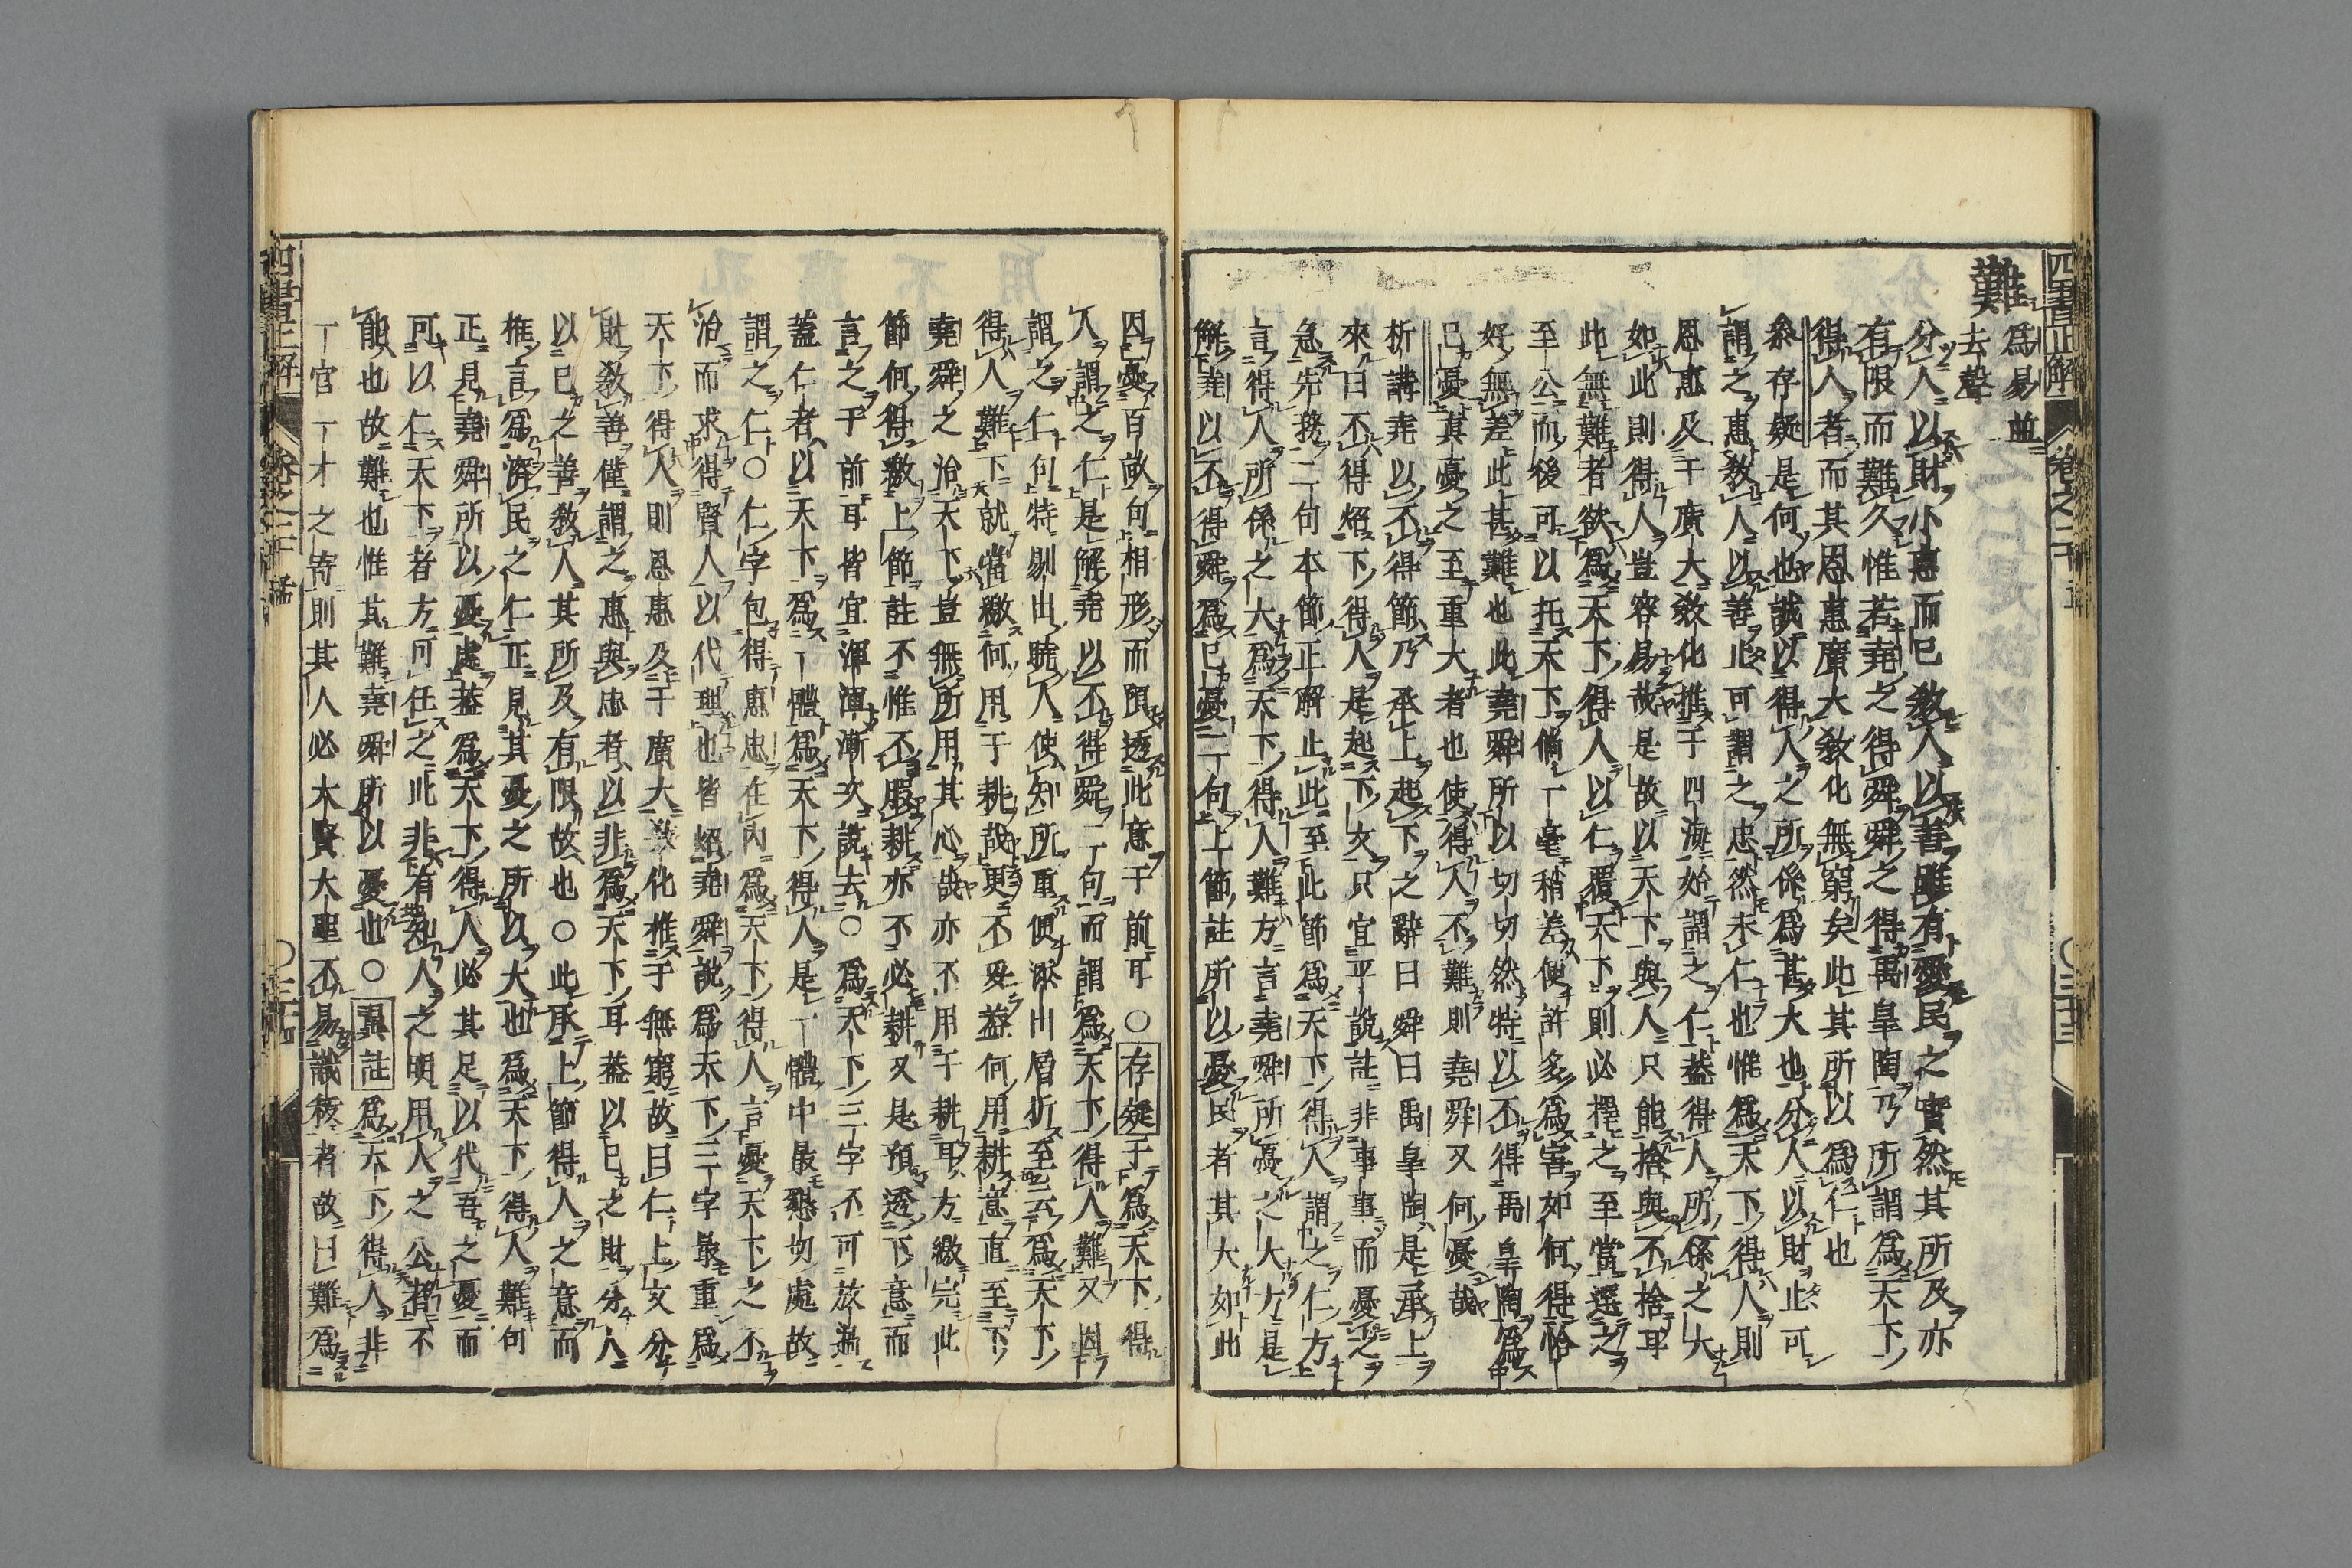 四書正解
卷之二十五
三十三
難
為易並
去聲
分人以財小惠而已教人以善雖有愛民之實然其所及亦
有限而難久惟若堯之得舜舜之得禹皐陶乃所謂為天下
得人者而其恩惠廣大教化無窮矣此其所以為仁也
叅存疑是何也誠以得人之所係為甚大也分人以財止可
謂之惠教人以善止可謂之忠然未仁也惟為天下得人則
恩惠及于廣大教化推于四海始謂之仁蓋得人所係之大
如此則得人豈容易哉是故以天下與人只能捨與不捨耳
此無難者欲為天下得人以仁覆天下則必擇之至當選之
至公而後可以托天下倘一毫稍差便許多為害如何得恰
好無差此甚難也此堯舜所以切切然特以不得禹皐陶為
已憂其憂之至重大者也使得人不難則堯舜又何憂哉
析講堯以不得節乃承上起下之辭曰舜曰禹皐陶是承上
來曰不得炤下得人是起下文只宜平說註非事事而憂之
急先務二句本節正解止此至此節為天下得人謂之仁方
言得人所係之大為天下得人難方言堯舜所憂之大大是
解堯以不得舜為已憂二句上節註所以憂民者其大如此
因憂百畝句相形而預透此意于前耳○存疑子為天下得
人謂之仁是解堯以不得舜一句而謂為天下得人難又因
謂之仁句特剔出驍人使知所重便添出層折至云為天下
得人難下就當繳何用于耕哉更不妥益何用耕意直至下
堯舜之治天下豈無所用其心哉亦不用于耕耳方繳完此
節何得繳上節註不惟不暇耕亦不必耕又是預透下意而
言之于前耳皆宜渾渾漸次說去○為天下三字不可放過
蓋仁者以天下為一體為天下得人是一體中最懇切處故
謂之仁○仁字包得惠忠在內為天下得人言憂天下之不
治而求得賢人以代理也皆炤堯舜說為天下三字最重為
天下得人則恩惠及于廣大教化推于無窮故曰仁上文分
財教善僅謂之惠與忠者以非為天下耳蓋以已之財分人
以已之善教人其所及有限故也○此承上節得人之意而
推言為濟民之仁正見其憂之所以大也為天下得人難句
正見堯舜所以憂處蓋為天下得人必其足以代吾之憂而
可以仁天下者方可任之此非有知人之明用人之公者不
能也故難也惟其難堯舜所以憂也○異註為天下得人非
一官一才之寄則其人必大賢大聖不易識㧞者故曰難為
四書正解
卷之二十五
三十四